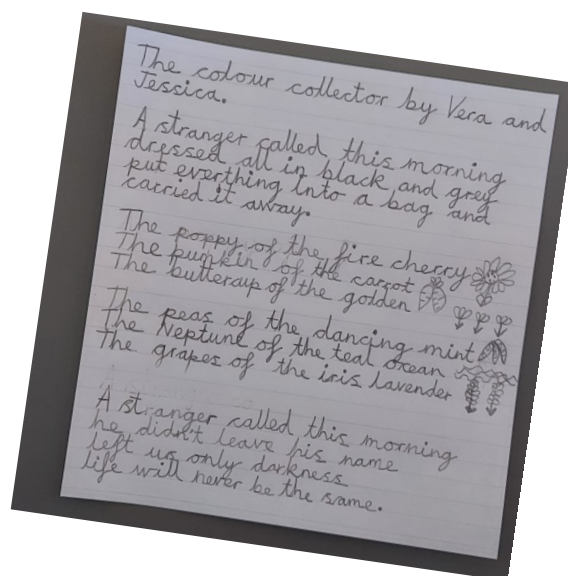 The colour collector by Vera and
Jessica.
A stranger called this morning
dressed all in black and grey
put everthing into a bag and
carried it away.
The poppy of the fire cherry
The pumkin of the carrot
The buttercup of the golden
The peas of the dancing mint
The Neptune of the teal ocean
The grapes of the iris lavender
A stranger called this morning
he didn't leave his name
left us only darkness
life will never be the same.